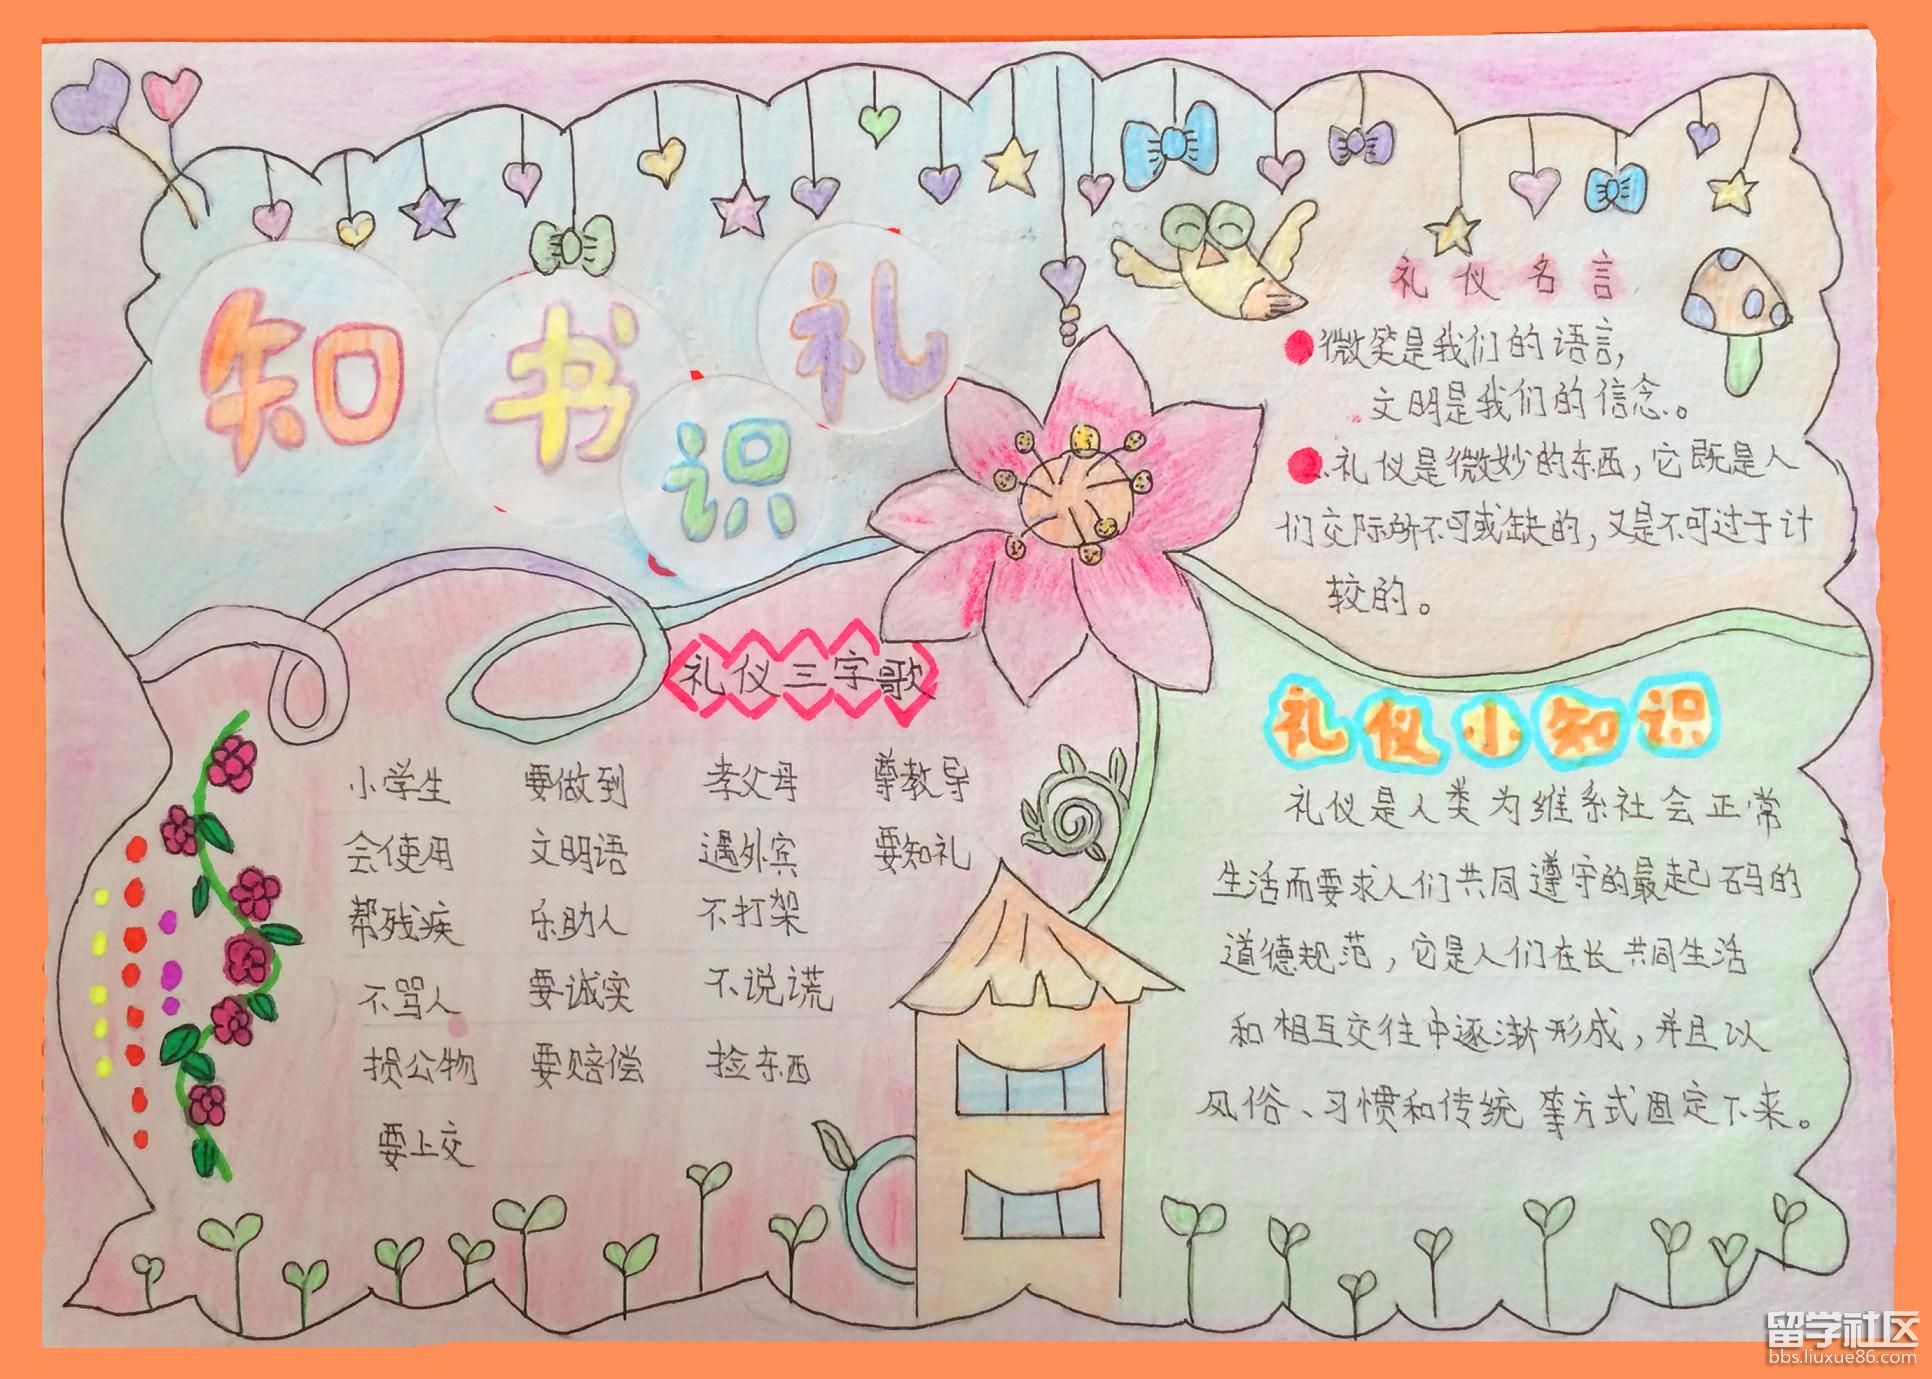 知书识礼
礼仪名言
微笑是我们的语言,
文明是我们的信念。
礼仪是微妙的东西,它既是人
们交际所不可或缺的,又是不可过于计
较的。
礼仪三字歌
小学生 要做到 孝父母 尊教导
会使用 文明语 遇外宾 要知礼
帮残疾 乐助人 不打架
不骂人 要诚实 不说谎
损公物 要赔偿 捡东西
要上交
礼仪小知识
礼仪是人类为维系社会正常
生活而要求人们共同遵守的最起码的
道德规范,它是人们在长共同生活
和相互交往中逐渐形成,并且以
风俗、习惯和传统等方式固定下来。
留学社区
bbs.liuxue86.com